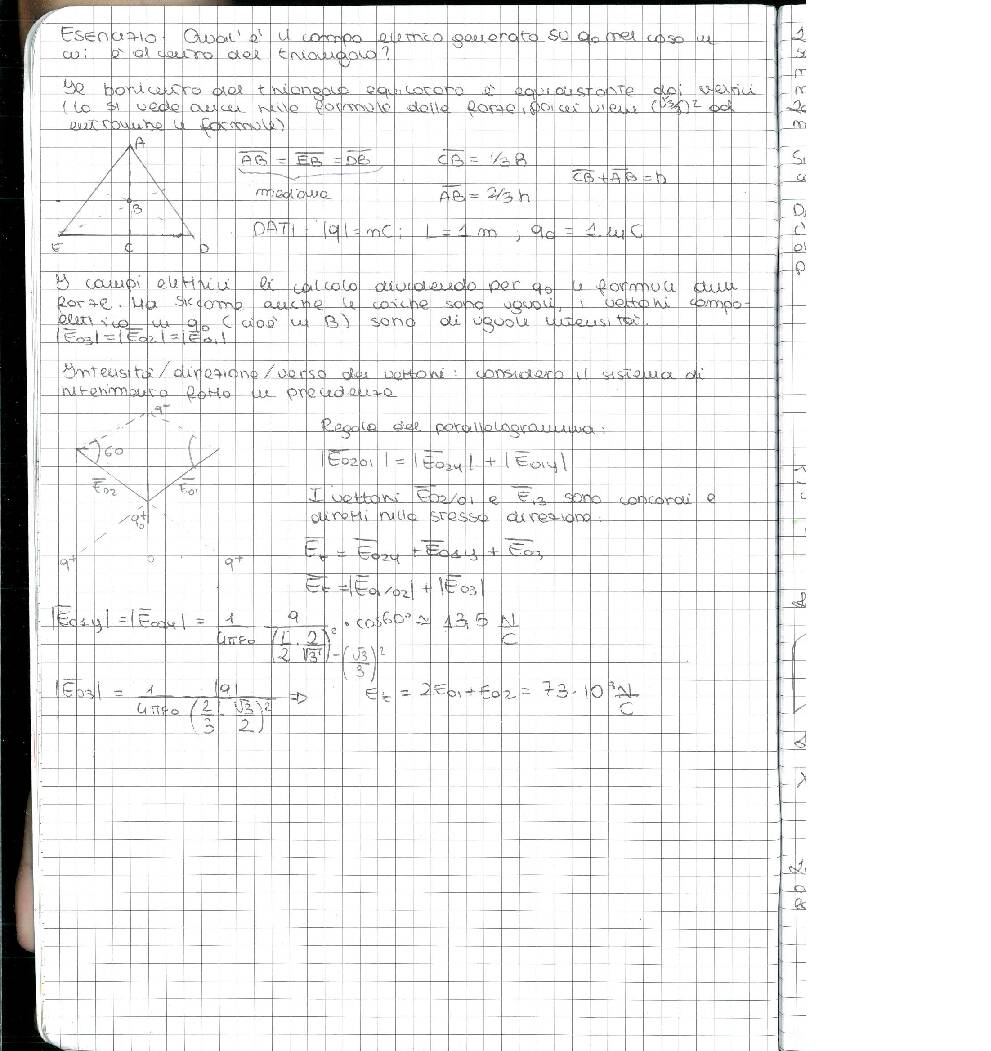 Esercizio: Qual'è il campo elettrico generato su q0 nel caso in
cui è al centro del triangolo?
Il baricentro del triangolo equilatero è equidistante dai vertici
(lo si vede anche nelle formule delle forze, poiché viene (√3/3)² ad
entrambe le formule)
A
B
E C D
AB = EB = DB
mediana
CB = 1/3 h
AB = 2/3 h
CB + AB = h
DATI: |q| = nC; L = 1 m ; q0 = 1
I campi elettrici li calcolo dividendo per q0 le formule delle
forze. Ma siccome anche le cariche sono uguali, i vettori campo
elettrico in q0 (cioè in B) sono di uguale intensità.
|E03| = |E02| = |E01|
Intensità/direzione/verso dei vettori: considero il sistema di
riferimento fatto in precedenza
q-
60
E02 E01
q0+
q+ q+
Regola del parallelogramma:
|E0201| = |E02y| + |E01y|
I vettori E02/01 e sono concordi e
diretti nella stessa direzione:
Et = E02y + E01y + E03
Et = |E01/02| + |E03|
|E01y| = |E02y| = 1/4πε0 q/(L/2 · 2/√3)² · cos60° ≃ 13,5 N/C
(√3/3)²
|E03| = 1/4πε0 |q|/(2/3 · √3/2)² ⇒ Et = 2E01 + E02 = 73 · 10³ N/C